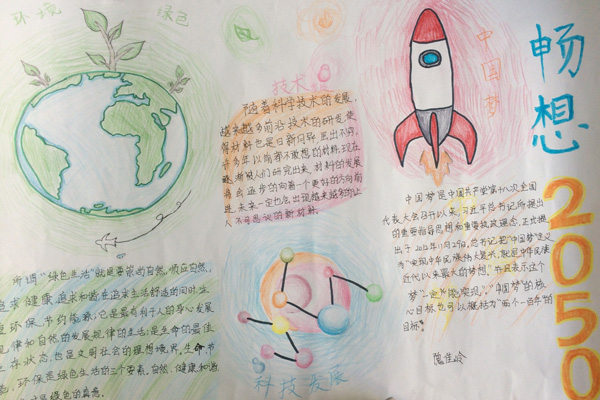 环境
绿色
技术
中国梦
畅想
2050
随着科学技术的发展,
越来越多前沿技术的研发,使
得材料也是日新月异,层出不穷,
许多年以前都不敢想的材料,现在
逐渐被人们研究出来,材料的发展
将会逐步的向着一个更好的方向前
进,未来一定也会出现越来越多的让
人不可思议的新材料。
中国梦是中国共产党第十八次全国
代表大会召开以来,习近平总书记所提出
的重要指导思想和重要执政理念,正式提
出于2012年11月29日。总书记把"中国梦"定义
为"实现中华民族伟大复兴,就是中华民族
近代以来最大的梦想",并且表示这个
梦"一定"能实现。"中国梦"的核
心目标也可以概括为"两个一百年"的
目标
所谓"绿色生活"就是要崇尚自然,顺应自然,
追求健康,追求和谐,在追求生活舒适的同时,注
重环保,节约能源,它是最有利于人的身心发展
规律和自然的发展规律的生活;是生命的最佳
存状态,也是文明社会的理想境界。生命、节
能、环保是绿色生活的三个要素。自然、健康和谐
是绿色的真意。
科技发展